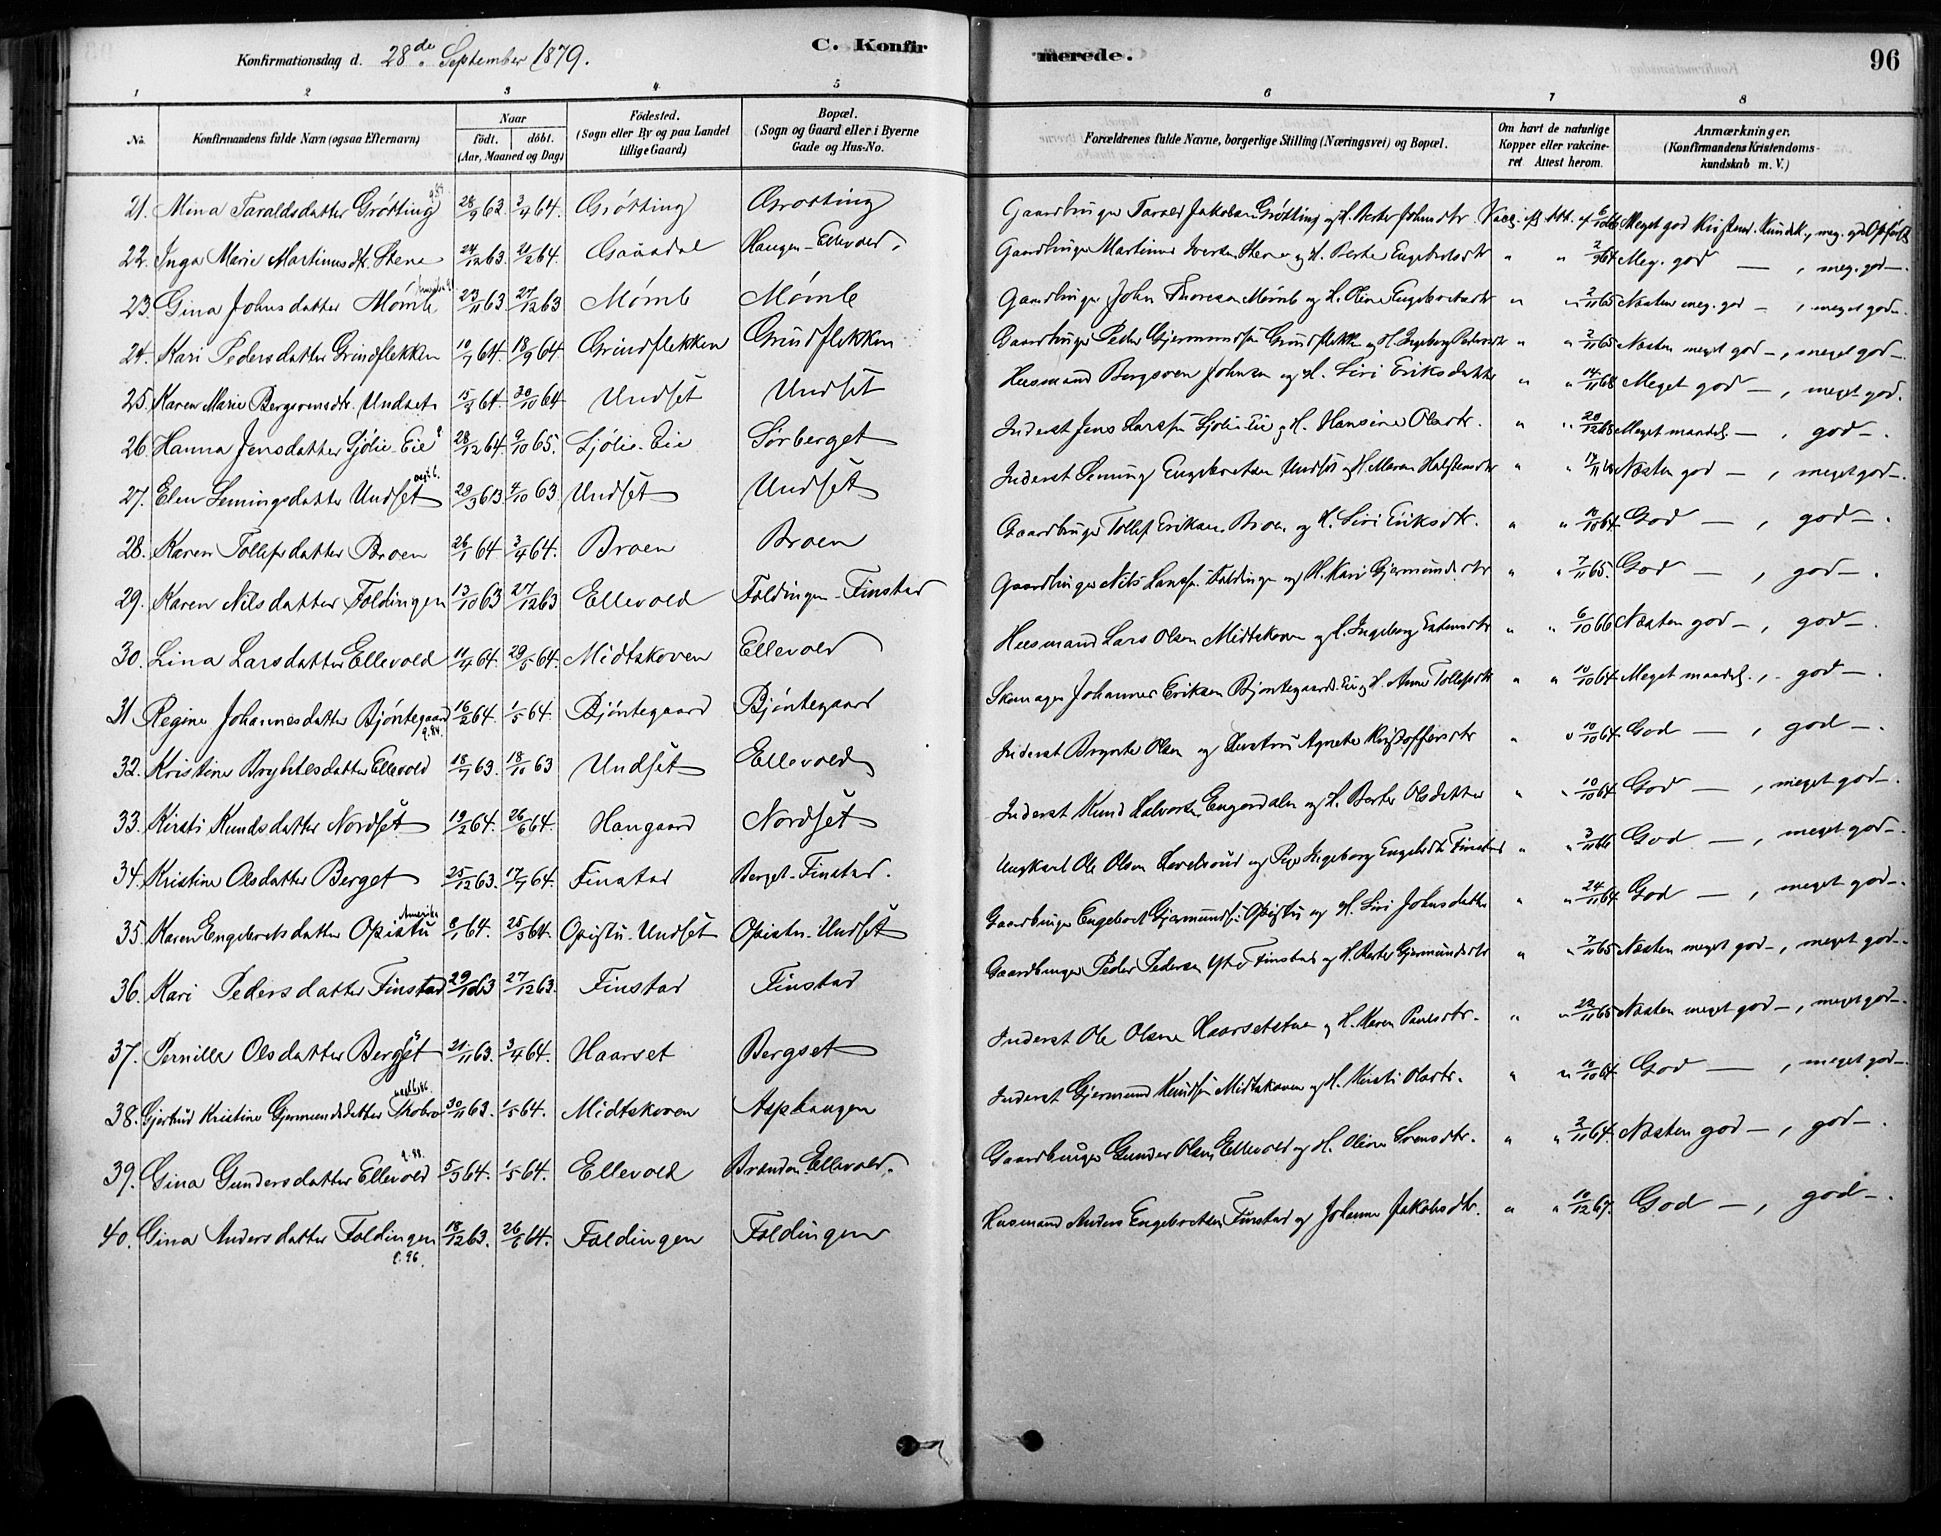 Konfirmationsdag d. 28de September 1879.
C. Konfirmerede.
96
1 2 3 4 5 6 7 8
No. Konfirmandens fulde Navn (ogsaa Efternavn) Naar født. døbt. (Aar, Maaned og Dag) Fødested. (Sogn eller By og paa Landet tillige Gaard) Bopæl. (Sogn og Gaard eller i Byerne Gade og Hus-No. Forældrenes fulde Navne, borgerlige Stilling (Næringsvei) og Bopæl. Om havt de naturlige Kopper eller vakcineret Attest herom. Anmærkninger. (Konfirmandens Kristendomskundskab m. V.)
21. Mina Taraldsdatter Grøtting 28/9 63 3/4 64. Grøtting Grøtting Gaardbruger Tarald Jakobsen Grøtting og H. Berte Johnsdtr Vacc. Meget god Kristend. Kundsk., meg. god
22. Inga Marie Martinusdtr. Stene 24/12 63. 21/2 64. Haugen-Ellevold. Gaardbruger Martinus Iversen Stene og H. Berte Engebretsdtr " " Meg. god — , meg. god —.
23. Gina Johnsdatter Mømb 23/11 63 27/12 63 Mømb Mømb Gaardbruger John Thoresen Mømb og H. Oline Engebretsdtr " " 2/11 65 Næsten meg. god — , meget god —.
24. Kari Pedersdatter Grindflekken 10/7 64. 18/9 64. Grindflekken Grindflekken Gaardbruger Peder Gjermundsen Grindflekken og H. Ingeborg Pedersdtr " " 2/11 65 Næsten meget god —, meget god —.
25. Karen Marie Bergsvensdtr. Undset 15/8 64. 30/10 64 Undset Undset Husmand Bergsven Johnsen og H. Siri Eriksdatter " " 14/11 68 Meget god — , meget god.
26. Hanna Jensdatter Sjølie-Eie 28/12 64. 9/10 65. Sjølie-Eie Sørberget Inderst Jens Larssen Sjølie-Eie og H. Hansine Olsdtr. " " 20/12 68 Meget maadel. — , god —.
27. Elen Lemingsdatter Undset 29/3 63 4/10 63 Undset Undset Inderst Leming Engebretsen Undset og H. Maren Halstensdtr " " Næsten god — , meget god —.
28. Karen Tollefsdatter Broen 26/1 64. 3/4 64. Broen Broen Gaardbruger Tollef Eriksen Broen og H. Siri Eriksdtr. " " 10/10 64. God — , god —.
29. Karen Nilsdatter Foldingen 13/10 63 27/12 63 Ellevold Foldingen-Finstad Gaardbruger Nils Larssen Foldingen og H. Kari Gjermundsdtr " " 7/11 65. God — , god —.
30. Lina Larsdatter Ellevold 11/4 64. 29/5 64. Midtskoven Ellevold Husmand Lars Olsen Midtskoven og H. Ingeborg Estensdtr " " 6/10 66 Næsten god —, god —.
31 Regine Johannesdatter Bjøntegaard 16/2 64. 1/5 64. Bjøntegaard Bjøntegaard Skomager Johannes Eriksen Bjøntegaards Eie og H. Anne Tollefsdtr " " 10/10 64. Meget maadel., god —.
32. Kristine Bryhtesdatter Ellevold 18/7 63. 18/10 63 Undset Ellevold Inderst Brynte Olsen og Hustru Agnete Kristoffersdtr " " 10/10 64. God — , god —.
33. Kirsti Knudsdatter Nordset 19/2 64. 26/6 64. Haugaard Nordset Inderst Knud Halvorsen Engerdalen og H. Berte Olsdatter " " 10/10 64. God — , meget god —.
34. Kristine Olsdatter Berget 25/12 63. 17/7 64. Finstad Berget-Finstad. Ungkarl Ole Olsen og Pige Ingeborg Engebdtr. Finstad " " 3/11 66 God — , meget god —.
35. Karen Engebretsdatter Opistu Amerika 8/1 64. 25/3 64. Opistu-Undset Opistu-Undset Gaardbruger Engebret Gjermundsen Opistu og H. Siri Johnsdatter " " 24/11 64. God — , meget god —.
36. Kari Pedersdatter Finstad 29/10 63 27/12 63. Finstad Finstad Gaardbruger Peder Pedersen Ytre Finstad og H. Berte Gjermundsdtr " " 7/11 65 Næsten meget god —, meget god —.
37. Pernille Olsdatter Bergset 21/11 63. 3/4 64. Haarset Bergset Inderst Ole Olsen Haarsetstuen og H. Karen Paulsdtr. " " 22/11 65 Næsten meget god —, meget god —.
38. Gjertrud Kristine Gjermundsdatter 30/11 63. 1/5 64. Midtskoven Asphaugen Inderst Gjermund Knudsen Midtskoven og H. Kirsti Olsdtr. " " 10/10 64. God — , meget god —.
39. Gina Gundersdatter Ellevold 5/3 64. 1/5 64. Ellevold Branden Ellevold. Gaardbruger Gunder Olsen Ellevold og H. Oline Svensdtr. " " 2/11 64. Næsten god —, god —.
40. Gina Andersdatter Foldingen 18/12 63. 26/6 64. Foldingen Foldingen Husmand Anders Engebretsen Finstad og Johanne Jakobsdtr. " " 10/12 67. God —, god —.